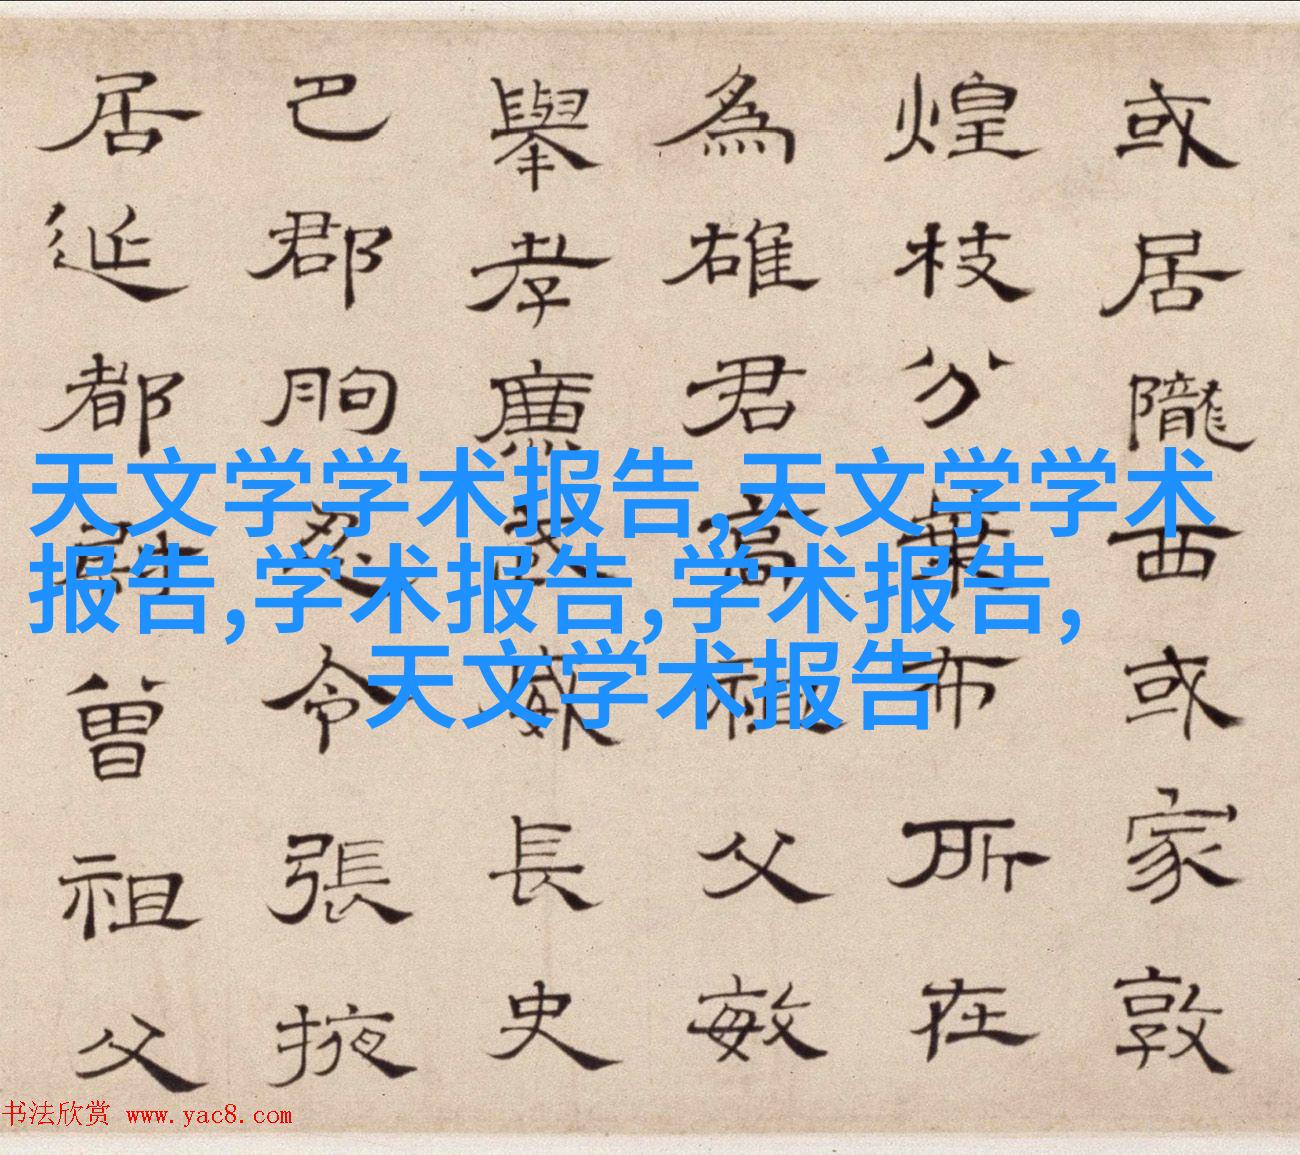 或居隴西或家敦
煌枝分葉布所在
為雄君高祖父敏
舉孝廉武威長史
巴郡朐忍令張掖
居延都尉曾祖父
天文学学术报告,天文学学术
报告,学术报告,学术报告,
天文学术报告
书法欣赏 www.yac8.com